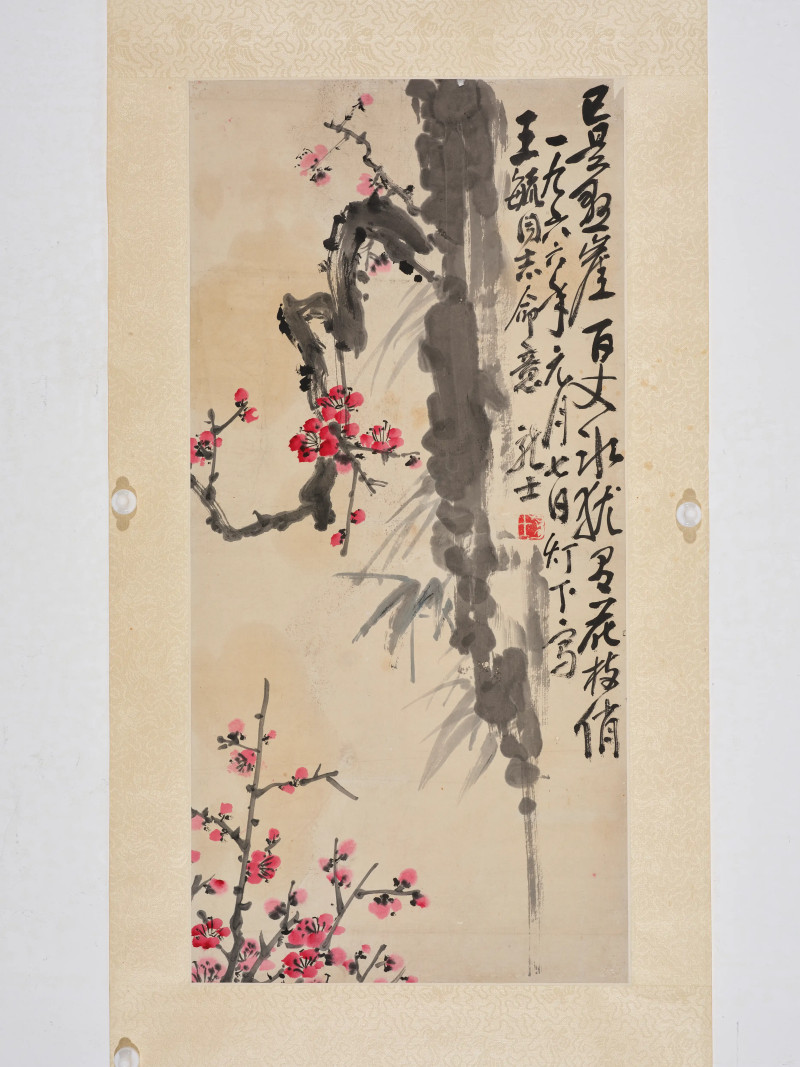 已是悬崖百丈冰犹有花枝俏
一九六六年元月七日灯下写
王毓同志命意 龙士